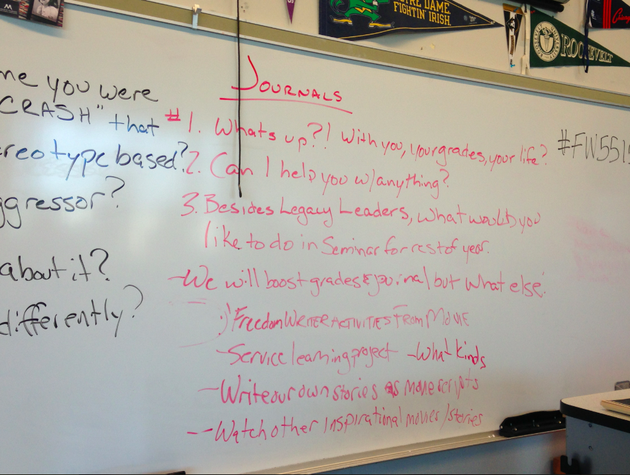 NOTRE DAME
FIGHTIN' IRISH
ROOSEVELT
me you were
"CRASH" that
reotype based?
ggressor?
about it?
differently?
JOURNALS
#1. What's up?! With you, your grades, your life?
2. Can I help you w/anything?
3. Besides Legacy Leaders, what would you
like to do in Seminar for rest of year.
-We will boost grades & but what else:
Freedom Writer Activities From Movie
-Service learning project -What kinds
-Write our own stories as movie scripts
-Watch other inspirational movies/stories
#FW551